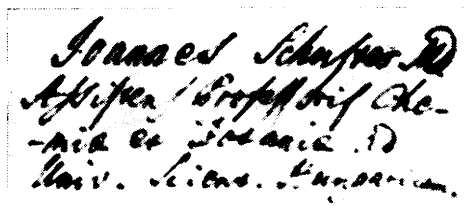 Joannes Schuster MD
Assistens Professoris Che-
-miae et Botanices AD
Univ. Scient. Hungaricam.